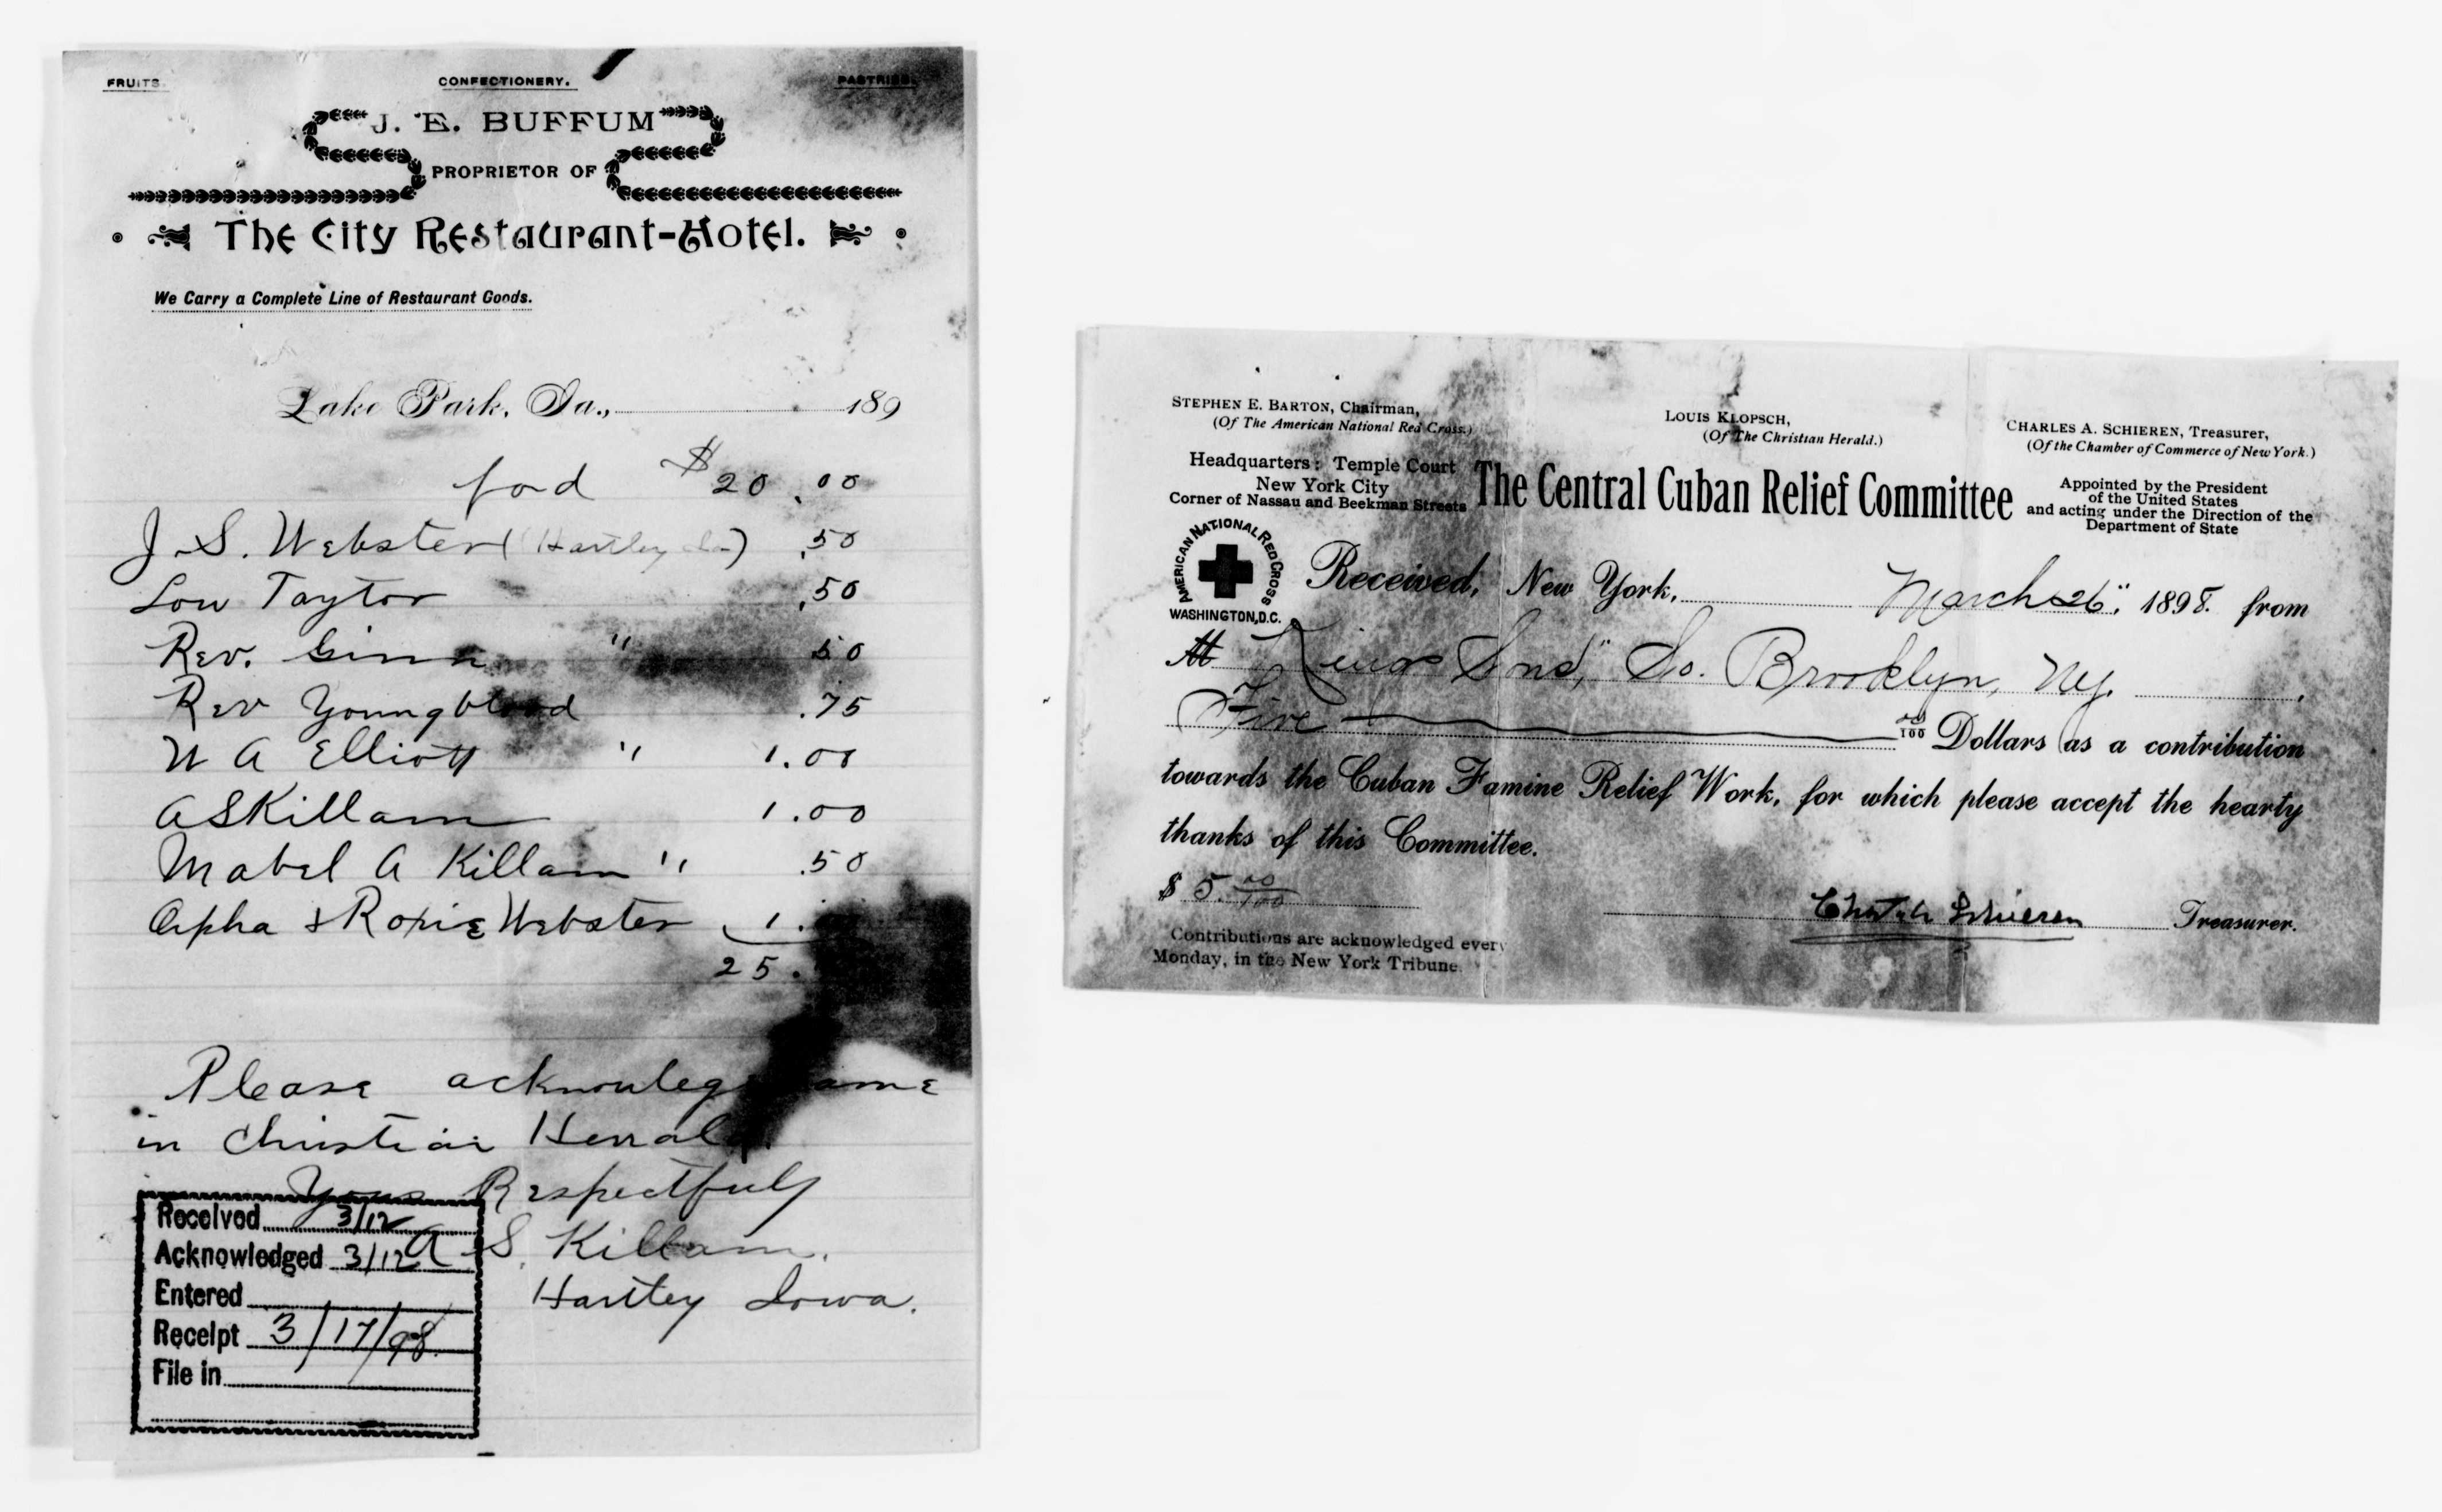 FRUITS. CONFECTIONERY. PASTRIES.
J. E. BUFFUM
PROPRIETOR OF
The City Restaurant-Hotel.
We Carry a Complete Line of Restaurant Goods.
Lake Park, Ia., 189
ford $20.00
J. S. Webster (Hartley Ia) .50
Lou Taytor .50
Rev. Ginn " .50
Rev Youngblood .75
W A Elliott " 1.00
A S Killam 1.00
Mabel A Killam " .50
Orpha & Roxie Webster 1.
25.
Please acknowleg same
in Christian Herrald.
Yours Respectfuly
A S. Killam.
Hartley Iowa.
Received 3/12
Acknowledged 3/12
Entered
Receipt 3/17/98
File in
STEPHEN E. BARTON, Chairman,
(Of The American National Red Cross.)
LOUIS KLOPSCH,
(Of The Christian Herald.)
CHARLES A. SCHIEREN, Treasurer,
(Of the Chamber of Commerce of New York.)
Headquarters: Temple Court
New York City
Corner of Nassau and Beekman Streets
The Central Cuban Relief Committee
Appointed by the President
of the United States
and acting under the Direction of the
Department of State
AMERICAN NATIONAL RED CROSS
WASHINGTON, D.C.
Received, New York, March 26", 1898. from
"Kings Sons," So. Brooklyn, Ny.
Five 00/100 Dollars as a contribution
towards the Cuban Famine Relief Work, for which please accept the hearty
thanks of this Committee.
$ 5.00/100
Chas A Schieren Treasurer.
Contributions are acknowledged every
Monday, in the New York Tribune.